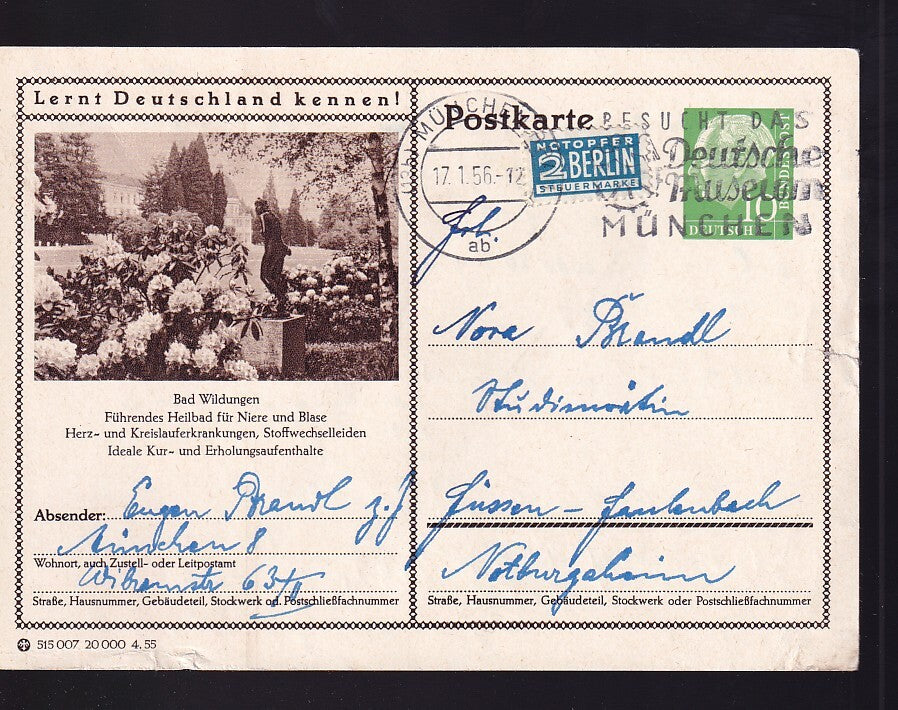 Lernt Deutschland kennen!
Bad Wildungen
Führendes Heilbad für Niere und Blase
Herz- und Kreislauferkrankungen, Stoffwechselleiden
Ideale Kur- und Erholungsaufenthalte
Absender: Eugen Brandl z. Z.
München 8
Wohnort, auch Zustell- oder Leitpostamt
63/II
Straße, Hausnummer, Gebäudeteil, Stockwerk od. Postschließfachnummer
515 007 20 000 4. 55
Postkarte
MÜNCHEN
17.1.56.-12
ab
NOTOPFER
2 BERLIN
STEUERMARKE
BESUCHT DAS
Deutsche
Museum
MÜNCHEN
10
DEUTSCHE
BUNDESPOST
Frl.
Nora Brandl
Studienrätin
Füssen - Faulenbach
Notburgaheim
Straße, Hausnummer, Gebäudeteil, Stockwerk oder Postschließfachnummer